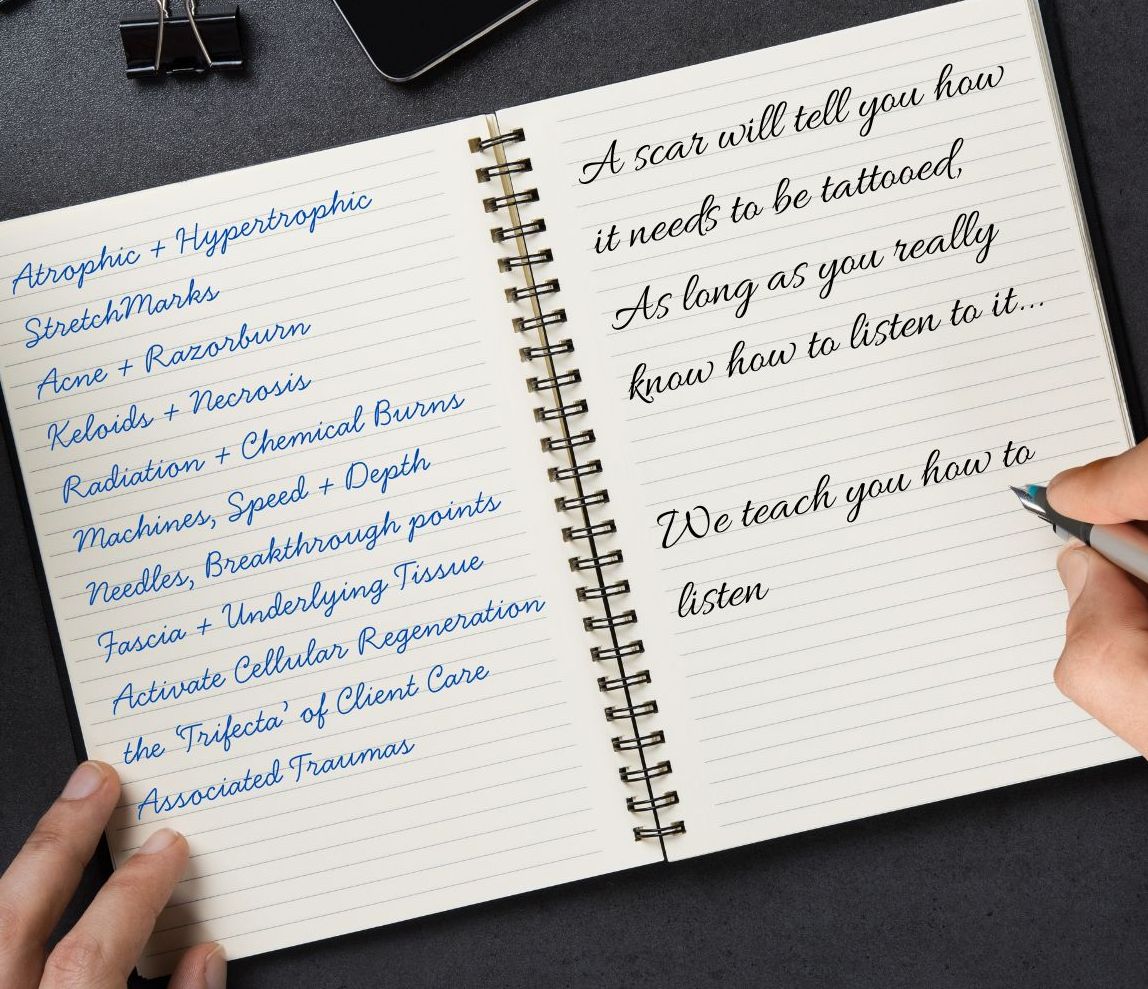 Atrophic + Hypertrophic
StretchMarks
Acne + Razorburn
Keloids + Necrosis
Radiation + Chemical Burns
Machines, Speed + Depth
Needles, Breakthrough points
Fascia + Underlying Tissue
Activate Cellular Regeneration
the 'Trifecta' of Client Care
Associated Traumas
A scar will tell you how
it needs to be tattooed,
As long as you really
know how to listen to it...
We teach you how to
listen